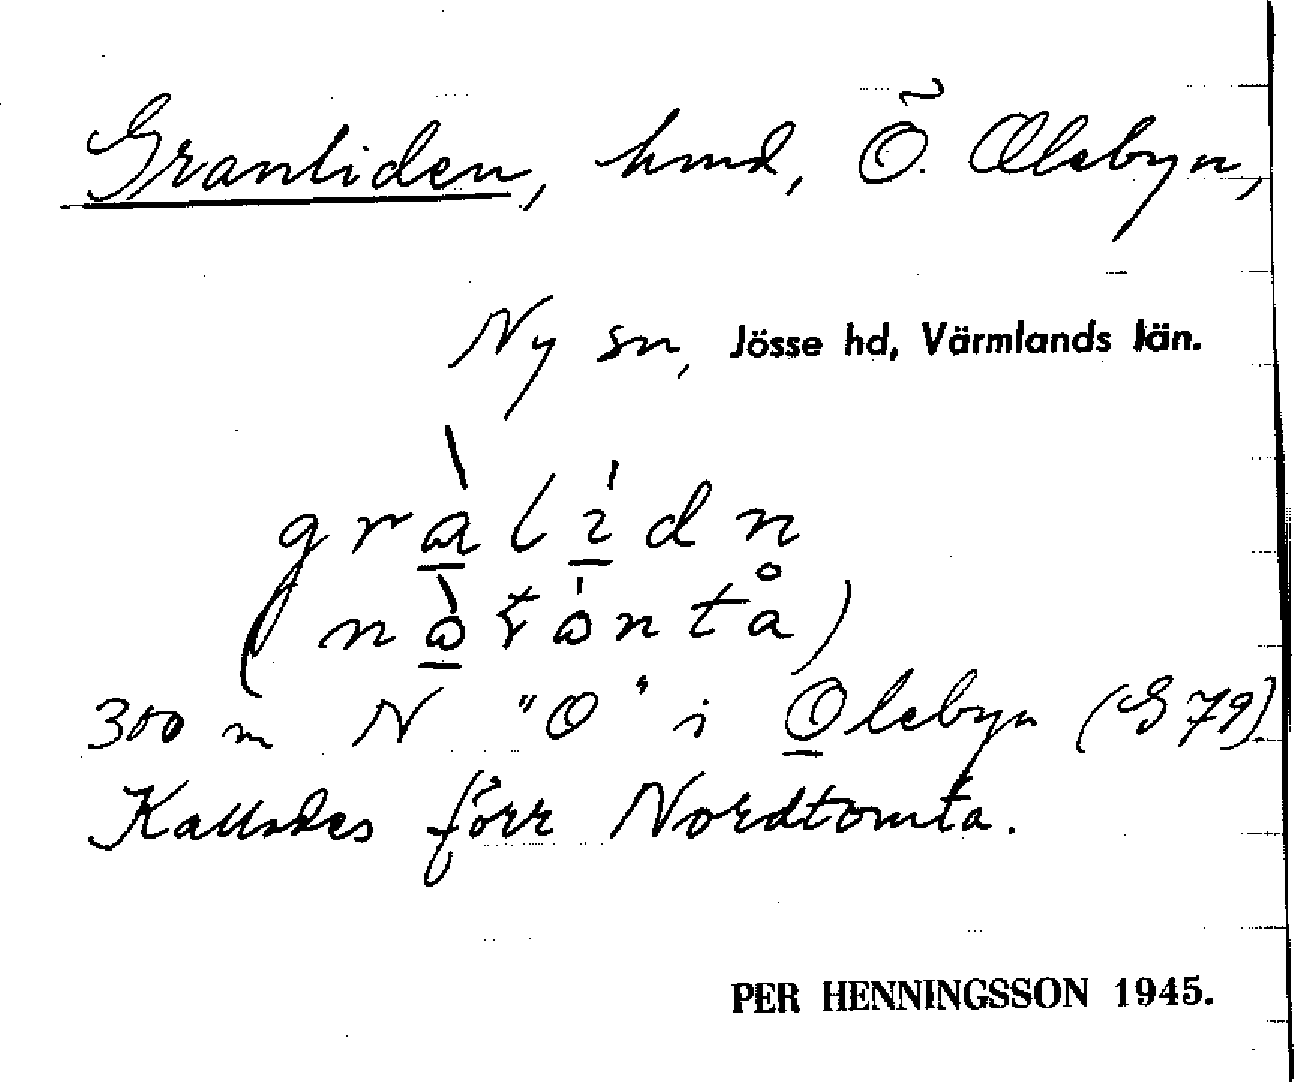 Granliden, hmd, Ö. Olebyn,
Ny sn, Jösse hd, Värmlands län.
gràlídn
(nòṙóntå)
300 m N "O" i Olebyn (G 79).
Kallades förr Nordtomta.
PER HENNINGSSON 1945.